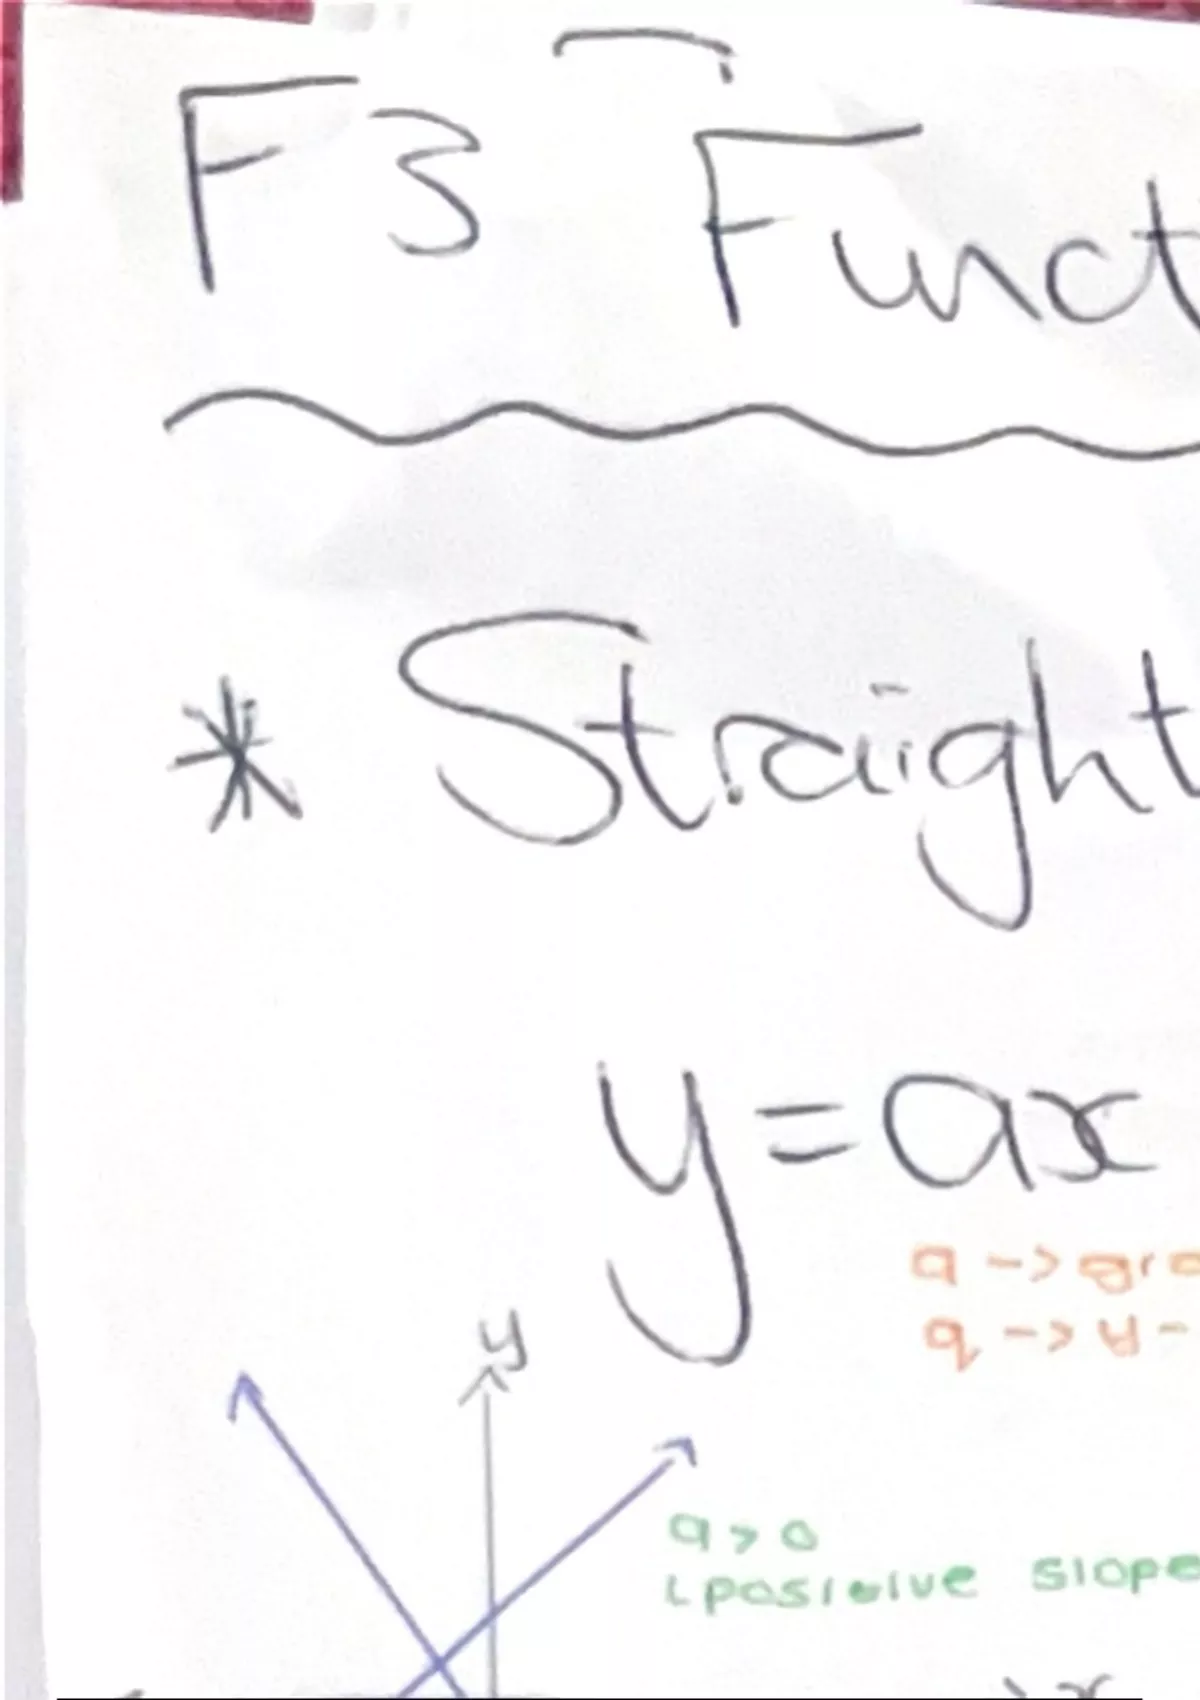 F3 Funct
* Straight
y = ax
a -> gra
q -> y-
y
a > 0
positive slope
x